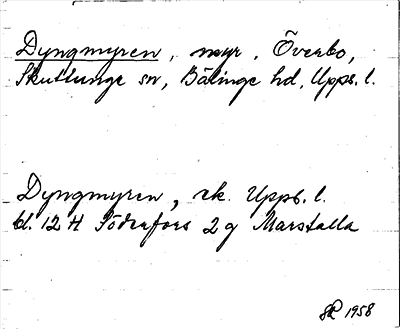 Dyngmyren, myr, Överbo,
Skuttunge sn, Bälinge hd, Upps. l.
Dyngmyren, ek. Upps. l.
bl. 12 H Söderfors 2 g Marstalla
1958